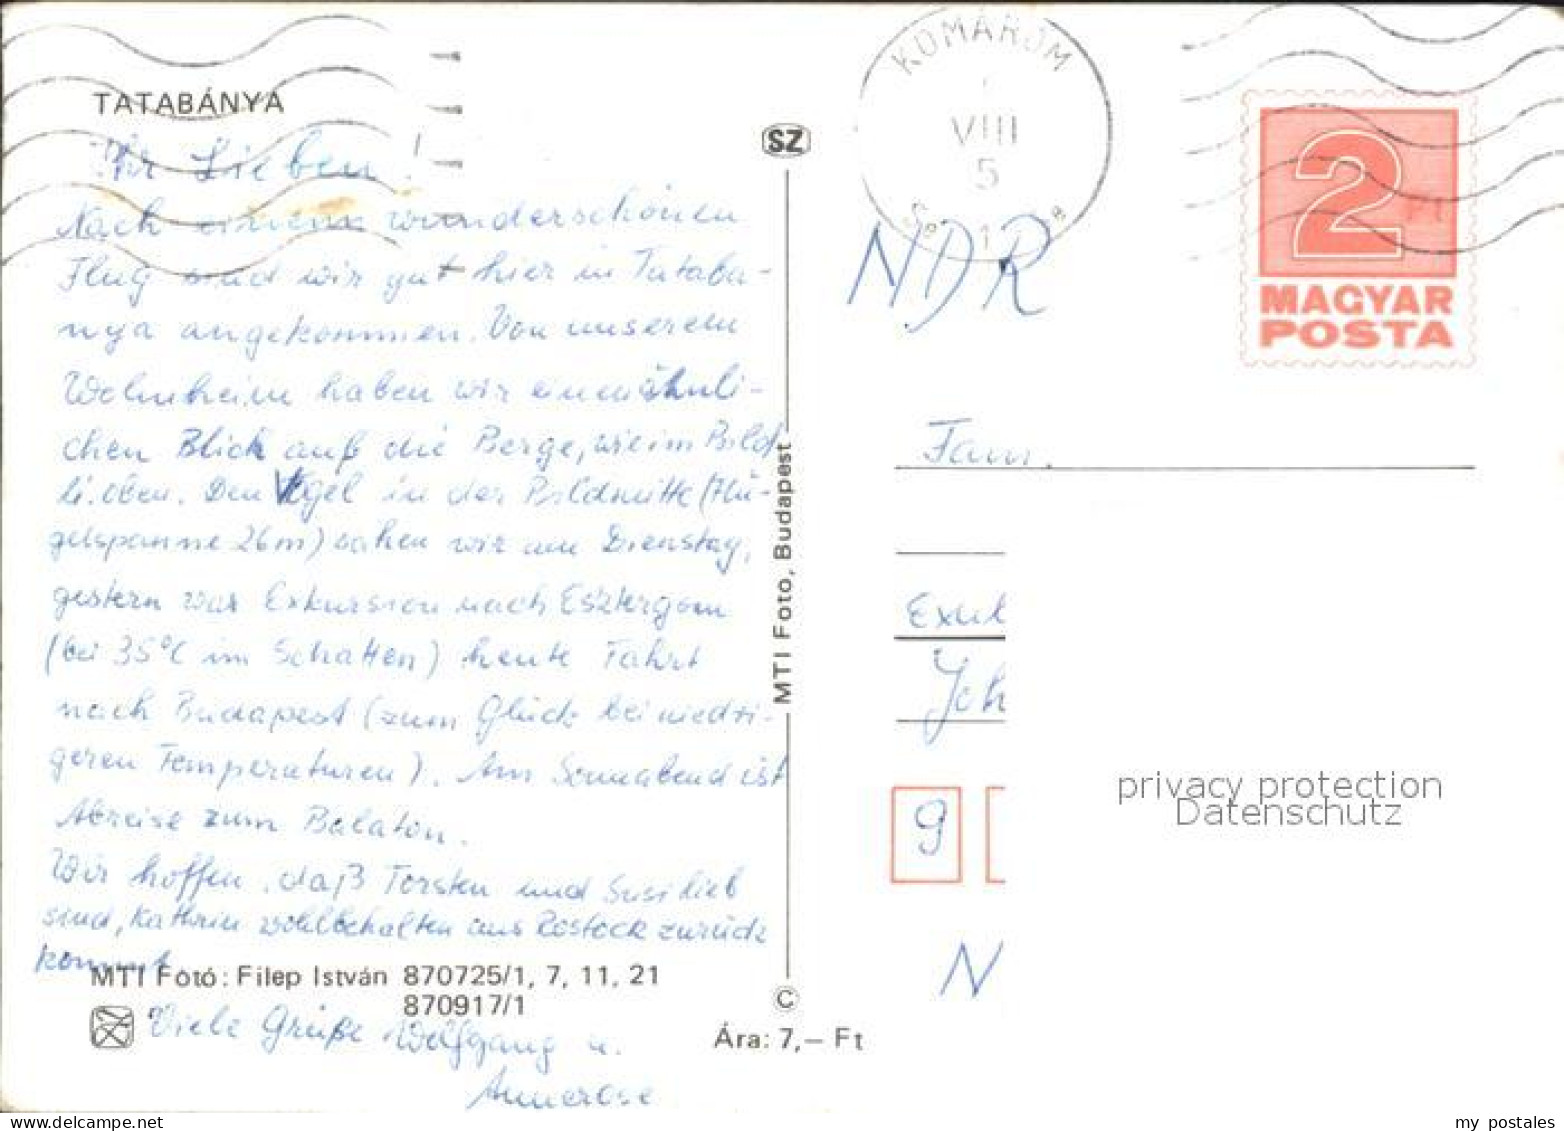 TATABÁNYA
Ihr Lieben!
Nach einem wunderschönen
Flug sind wir gut hier in Tataba-
nya angekommen. Von unserem
Wohnheim haben wir einen ähnli-
chen Blick auf die Berge, wie im Bild
li. oben. Den Vogel in der Bildmitte (Flü-
gelspanne 26m) sahen wir am Dienstag,
gestern war Exkursion nach Esztergom
(bei 35°C im Schatten) heute Fahrt
nach Budapest (zum Glück bei niedri-
geren Temperaturen). Am Sonnabend ist
Abreise zum Balaton.
Wir hoffen, daß Torsten und Susi lieb
sind, Kathrin wohlbehalten aus Rostock zurück
kommt
MTI Fotó: Filep István 870725/1, 7, 11, 21
870917/1
Viele Grüße Wolfgang u.
Annerose
SZ
MTI Foto, Budapest
©
Ára: 7,— Ft
KOMÁROM
VIII
5
1
NDR
2
Ft
MAGYAR
POSTA
Fam.
Joh
9
N
privacy protection
Datenschutz
www.delcampe.net
my_postales